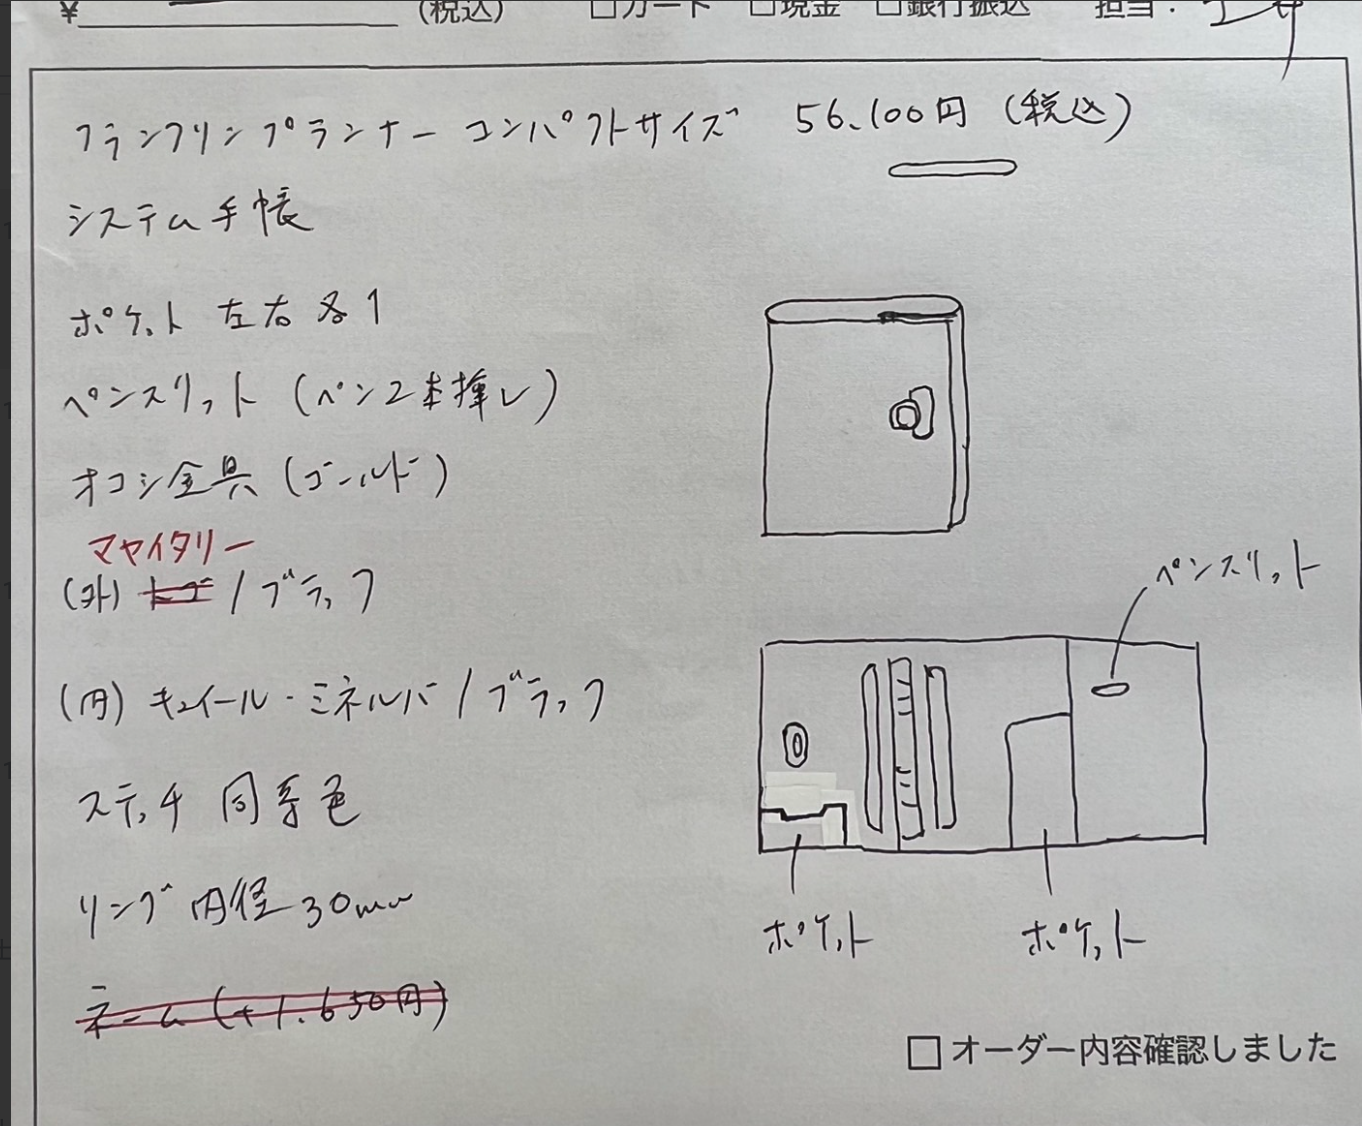 ¥ (税込) □カード □現金 □銀行振込 担当:
フランクリンプランナー コンパクトサイズ 56.100円 (税込)
システム手帳
ポケット 左右各1
ペンスリット (ペン2本挿し)
オコシ金具 (ゴールド)
マヤイタリー
(外) トゴ / ブラック
(内) キュイール・ミネルバ / ブラック
ステッチ 同系色
リング内径30mm
ネーム (+1.650円)
ペンスリット
ポケット
ポケット
□オーダー内容確認しました